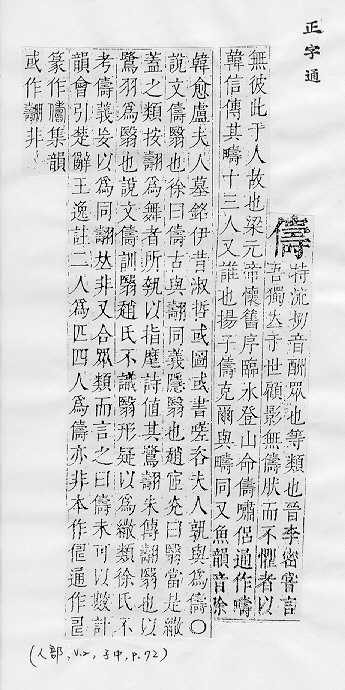 正字通
儔
特流切音酬眾也等類也晉李密嘗言
吾獨立于世顧影無儔然而不懼者以
無彼此于人故也梁元帝懷舊序臨氷登山命儔嘯侶通作疇
韓信傳其疇十三人又誰也揚子儔克爾與疇同又魚韻音除
韓愈盧夫人墓銘伊昔淑哲或圖或書嗟咨夫人孰與為儔〇
說文儔翳也徐曰儔古與翿同義隱翳也趙宧光曰翳當是繖
蓋之類按翿為舞者所執以指麾詩值其鷺翿朱傳翿翳也以
鷺羽為翳也說文儔訓翳趙氏不識翳形疑以為繖類徐氏不
考儔義妄以為同翿𠀤非又合眾類而言之曰儔未可以數計
韻會引楚辭王逸註二人為匹四人為儔亦非本作𠷎通作𠃬
篆作儔集韻
或作翿非
(人部, V.2, 子中, P.92)